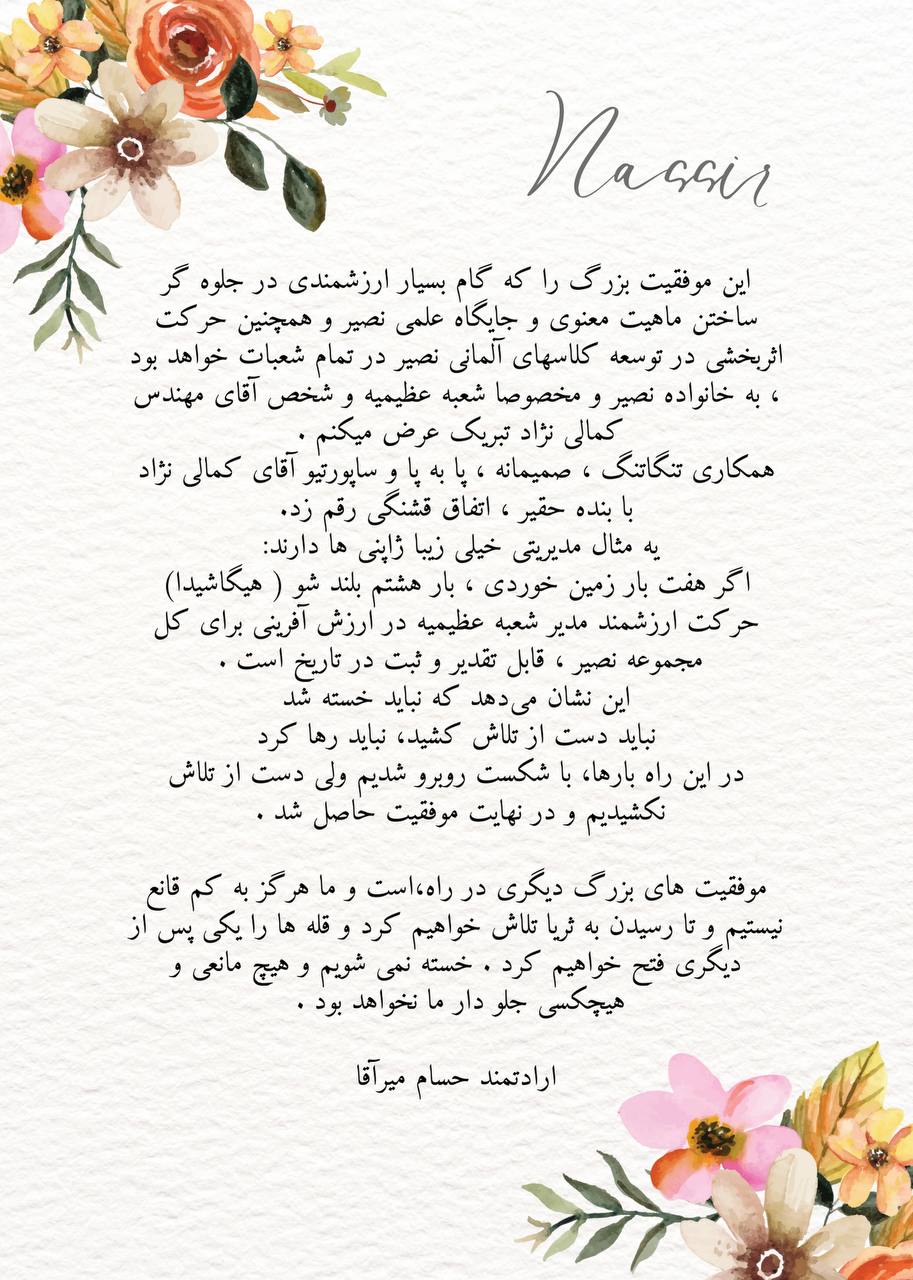 Nassir
این موفقیت بزرگ را که گام بسیار ارزشمندی در جلوه گر
ساختن ماهیت معنوی و جایگاه علمی نصیر و همچنین حرکت
اثربخشی در توسعه کلاسهای آلمانی نصیر در تمام شعبات خواهد بود
، به خانواده نصیر و مخصوصا شعبه عظیمیه و شخص آقای مهندس
کمالی نژاد تبریک عرض میکنم .
همکاری تنگاتنگ ، صمیمانه ، پا به پا و ساپورتیو آقای کمالی نژاد
با بنده حقیر ، اتفاق قشنگی رقم زد.
یه مثال مدیریتی خیلی زیبا ژاپنی ها دارند:
اگر هفت بار زمین خوردی ، بار هشتم بلند شو ( هیگاشیدا)
حرکت ارزشمند مدیر شعبه عظیمیه در ارزش آفرینی برای کل
مجموعه نصیر ، قابل تقدیر و ثبت در تاریخ است .
این نشان می‌دهد که نباید خسته شد
نباید دست از تلاش کشید، نباید رها کرد
در این راه بارها، با شکست روبرو شدیم ولی دست از تلاش
نکشیدیم و در نهایت موفقیت حاصل شد .
موفقیت های بزرگ دیگری در راه،است و ما هرگز به کم قانع
نیستیم و تا رسیدن به ثریا تلاش خواهیم کرد و قله ها را یکی پس از
دیگری فتح خواهیم کرد . خسته نمی شویم و هیچ مانعی و
هیچکسی جلو دار ما نخواهد بود .
ارادتمند حسام میرآقا